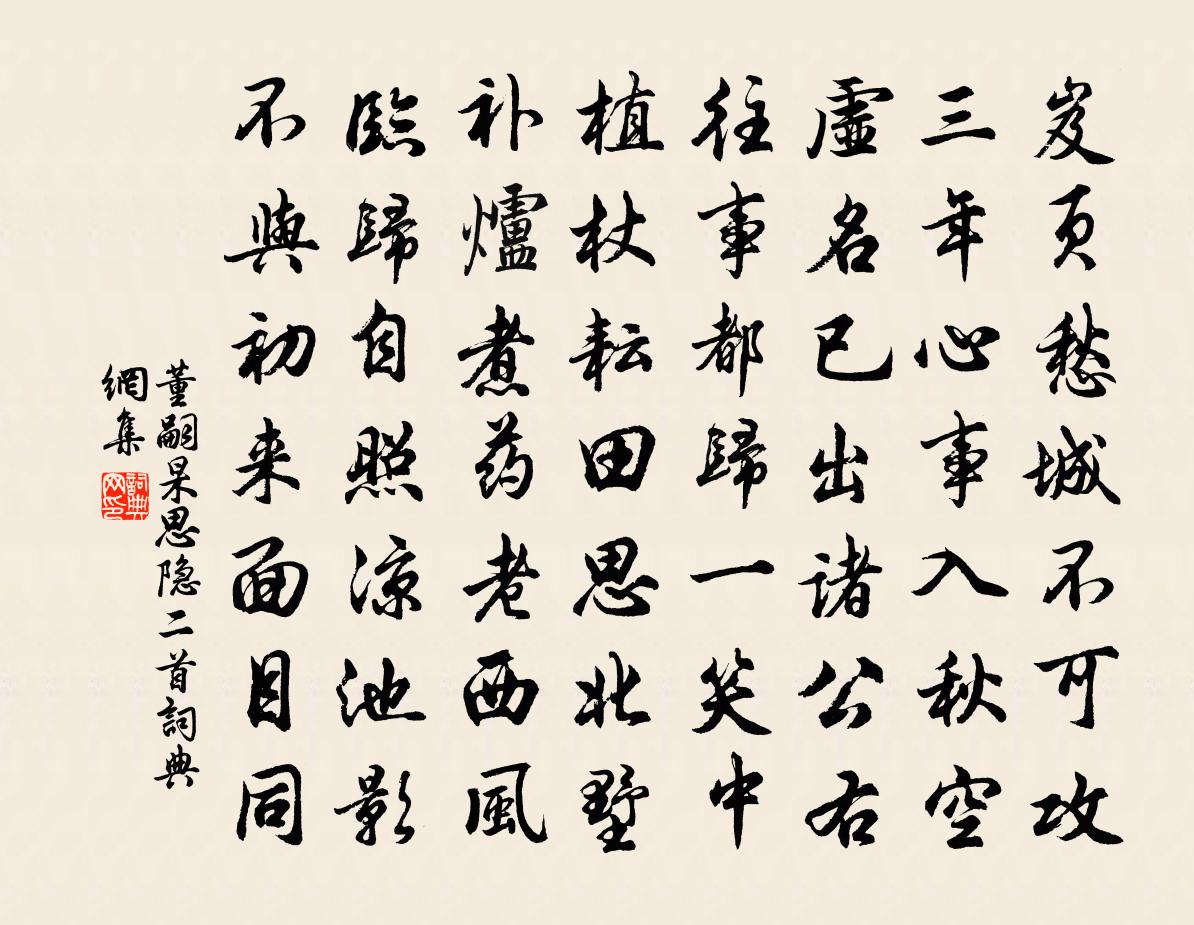 岌页愁城不可攻
三年心事入秋空
虛名已出诸公右
往事都歸一笑中
植杖耘田思北墅
补爐煮药老西風
臨歸自照涼池影
不與初来面目同
董嗣杲思隐二首詞典
網集
詞典
网印